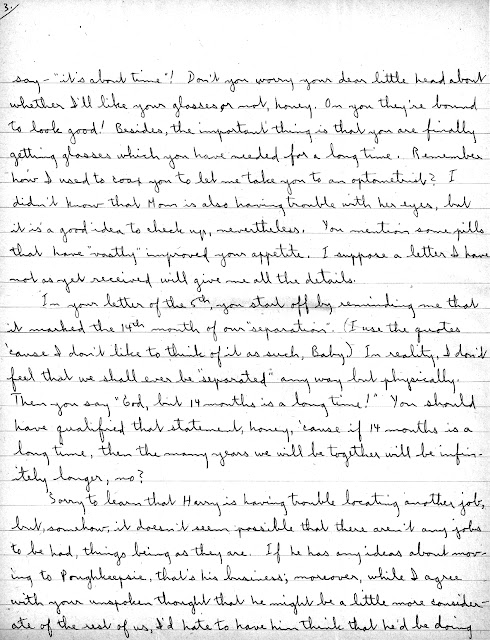 3.
say - "it's about time"! Don't you worry your dear little head about
whether I'll like your glasses or not, honey. On you they're bound
to look good! Besides, the important thing is that you are finally
getting glasses which you have needed for a long time. Remember
how I used to coax you to let me take you to an optometrist? I
didn't know that Mom is also having trouble with her eyes, but
it is a good idea to check up, nevertheless. You mention some pills
that have "vastly" improved your appetite. I suppose a letter I have
not as yet received will give me all the details.
In your letter of the 6th, you start off by reminding me that
it marked the 14th month of our "separation". (I use the quotes
'cause I don't like to think of it as such, Baby) In reality, I don't
feel that we shall ever be "separated" any way but physically.
Then you say "God, but 14 months is a long time!" You should
have qualified that statement, honey, 'cause if 14 months is a
long time, then the many years we will be together will be infin-
itely longer, no?
Sorry to learn that Harry is having trouble locating another job,
but, somehow, it doesn't seem possible that there aren't any jobs
to be had, things being as they are. If he has any ideas about mov-
ing to Poughkeepsie, that's his business; moreover, while I agree
with your unspoken thought that he might be a little more consider-
ate of the rest of us, I'd hate to have him think that he'd be doing